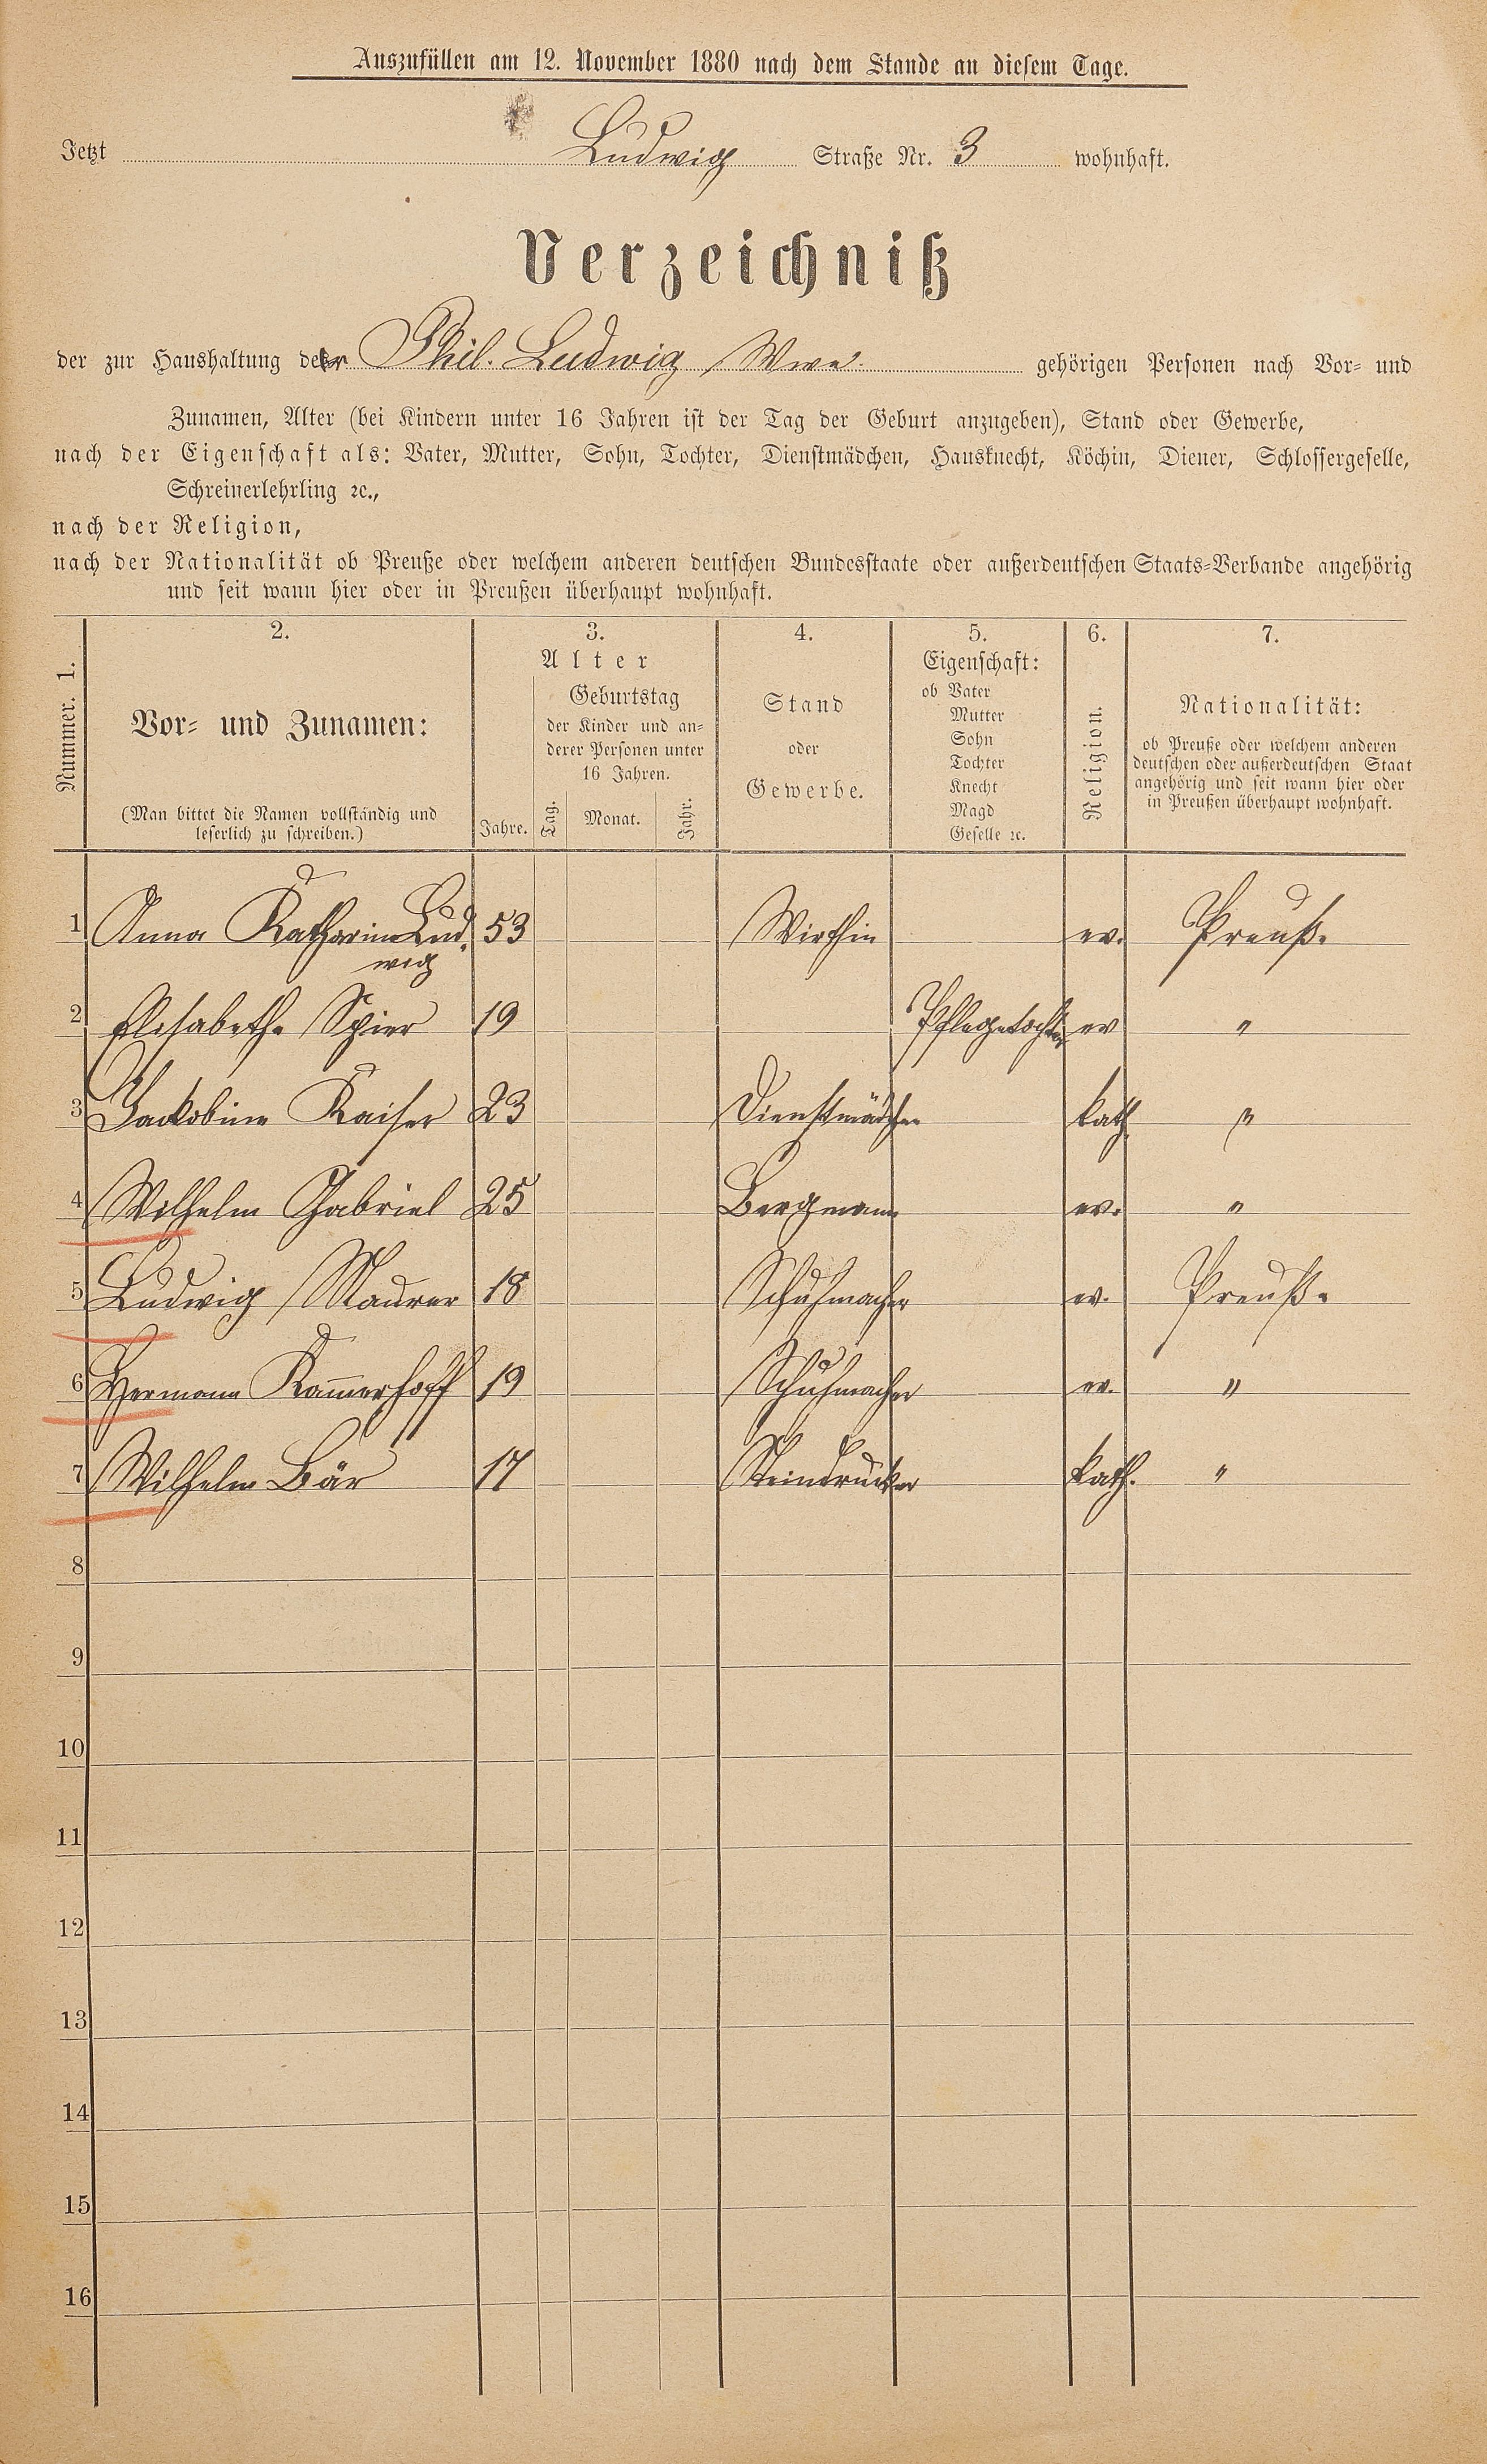 Auszufüllen am 12. November 1880 nach dem Stande an diesem Tage.
Jetzt Ludwig Straße Nr. 3 wohnhaft.
Verzeichniß
der zur Haushaltung der Phil. Ludwig Wwe. gehörigen Personen nach Vor- und
Zunamen, Alter (bei Kindern unter 16 Jahren ist der Tag der Geburt anzugeben), Stand oder Gewerbe,
nach der Eigenschaft als: Vater, Mutter, Sohn, Tochter, Dienstmädchen, Hausknecht, Köchin, Diener, Schlossergeselle,
Schreinerlehrling ꝛc.,
nach der Religion,
nach der Nationalität ob Preuße oder welchem anderen deutschen Bundesstaate oder außerdeutschen Staats-Verbande angehörig
und seit wann hier oder in Preußen überhaupt wohnhaft.
Nummer. 1.
2.
Vor- und Zunamen:
(Man bittet die Namen vollständig und
leserlich zu schreiben.)
3.
Alter
Jahre.
Geburtstag
der Kinder und an-
derer Personen unter
16 Jahren.
Tag. Monat. Jahr.
4.
Stand
oder
Gewerbe.
5.
Eigenschaft:
ob Vater
Mutter
Sohn
Tochter
Knecht
Magd
Geselle ꝛc.
6.
Religion.
7.
Nationalität:
ob Preuße oder welchem anderen
deutschen oder außerdeutschen Staat
angehörig und seit wann hier oder
in Preußen überhaupt wohnhaft.
1 Anna Katharina Lud- 53 Wirthin ev. Preuß.
wig
2 Elisabethe Spier 19 Pflegetochter ev "
3 Jackobine Kaiser 23 Dienstmädchen kath. "
4 Wilhelm Gabriel 25 Bergmann ev. "
5 Ludwig Maurer 18 Schuhmacher ev. Preuß.
6 Hermann Kam̅erhoff 19 Schuhmacher ev. "
7 Wilhelm Bär 17 Steindrucker kath. "
8
9
10
11
12
13
14
15
16